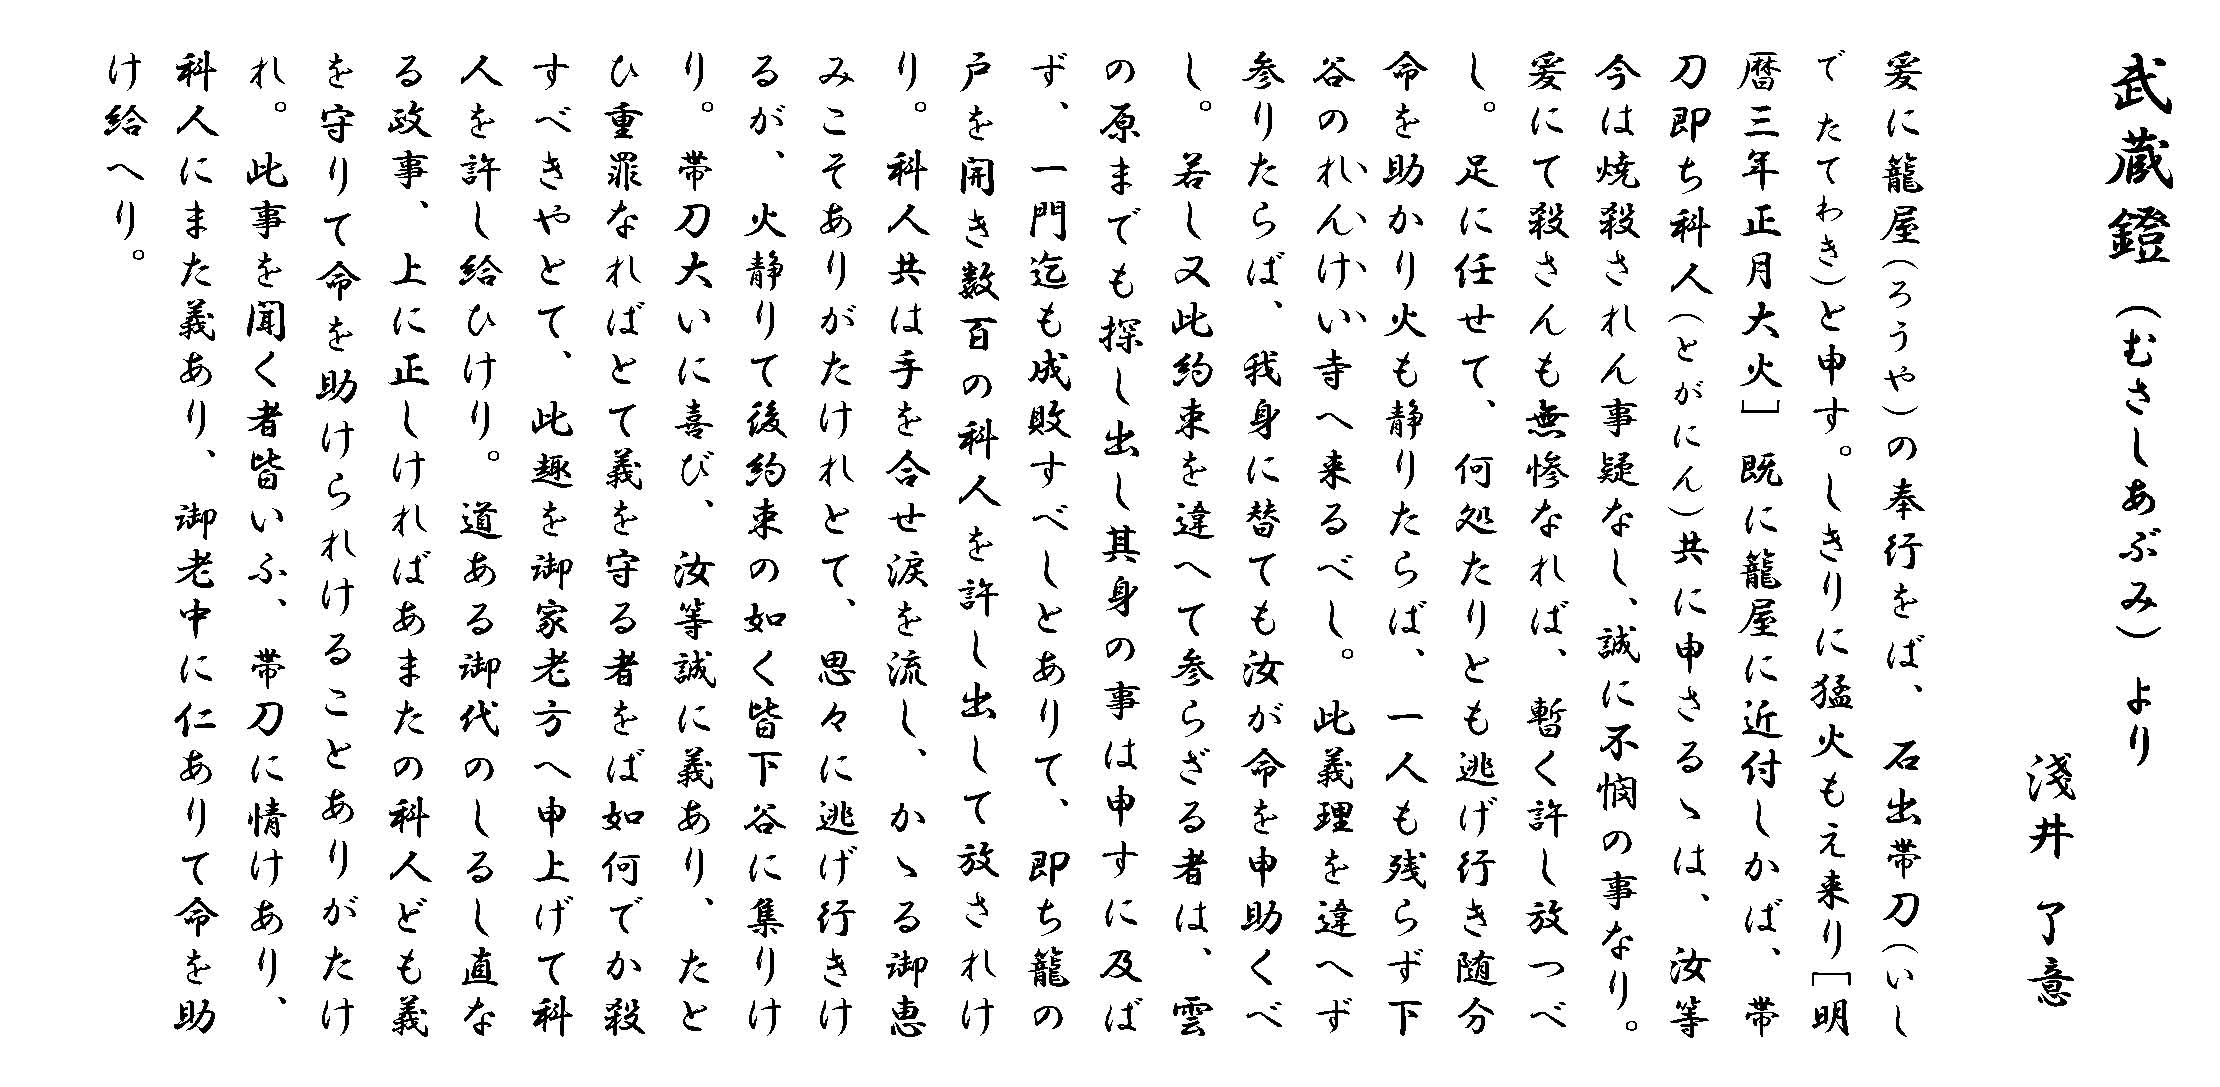 武蔵鐙（むさしあぶみ）より
淺井 了意
爰に籠屋(ろうや)の奉行をば、石出帯刀(いし
でたてわき)と申す。しきりに猛火もえ来り[明
暦三年正月大火] 既に籠屋に近付しかば、帯
刀即ち科人(とがにん)共に申さるゝは、汝等
今は焼殺されん事疑なし、誠に不憫の事なり。
爰にて殺さんも無惨なれば、暫く許し放つべ
し。足に任せて、何処たりとも逃げ行き随分
命を助かり火も静りたらば、一人も残らず下
谷のれんけい寺へ来るべし。此義理を違へず
参りたらば、我身に替ても汝が命を申助くべ
し。若し又此約束を違へて参らざる者は、雲
の原までも探し出し其身の事は申すに及ば
ず、一門迄も成敗すべしとありて、即ち籠の
戸を開き数百の科人を許し出して放されけ
り。科人共は手を合せ涙を流し、かゝる御恵
みこそありがたけれとて、思々に逃げ行きけ
るが、火静りて後約束の如く皆下谷に集りけ
り。帯刀大いに喜び、汝等誠に義あり、たと
ひ重罪なればとて義を守る者をば如何でか殺
すべきやとて、此趣を御家老方へ申上げて科
人を許し給ひけり。道ある御代のしるし直な
る政事、上に正しければあまたの科人ども義
を守りて命を助けられけることありがたけ
れ。此事を聞く者皆いふ、帯刀に情けあり、
科人にまた義あり、御老中に仁ありて命を助
け給へり。